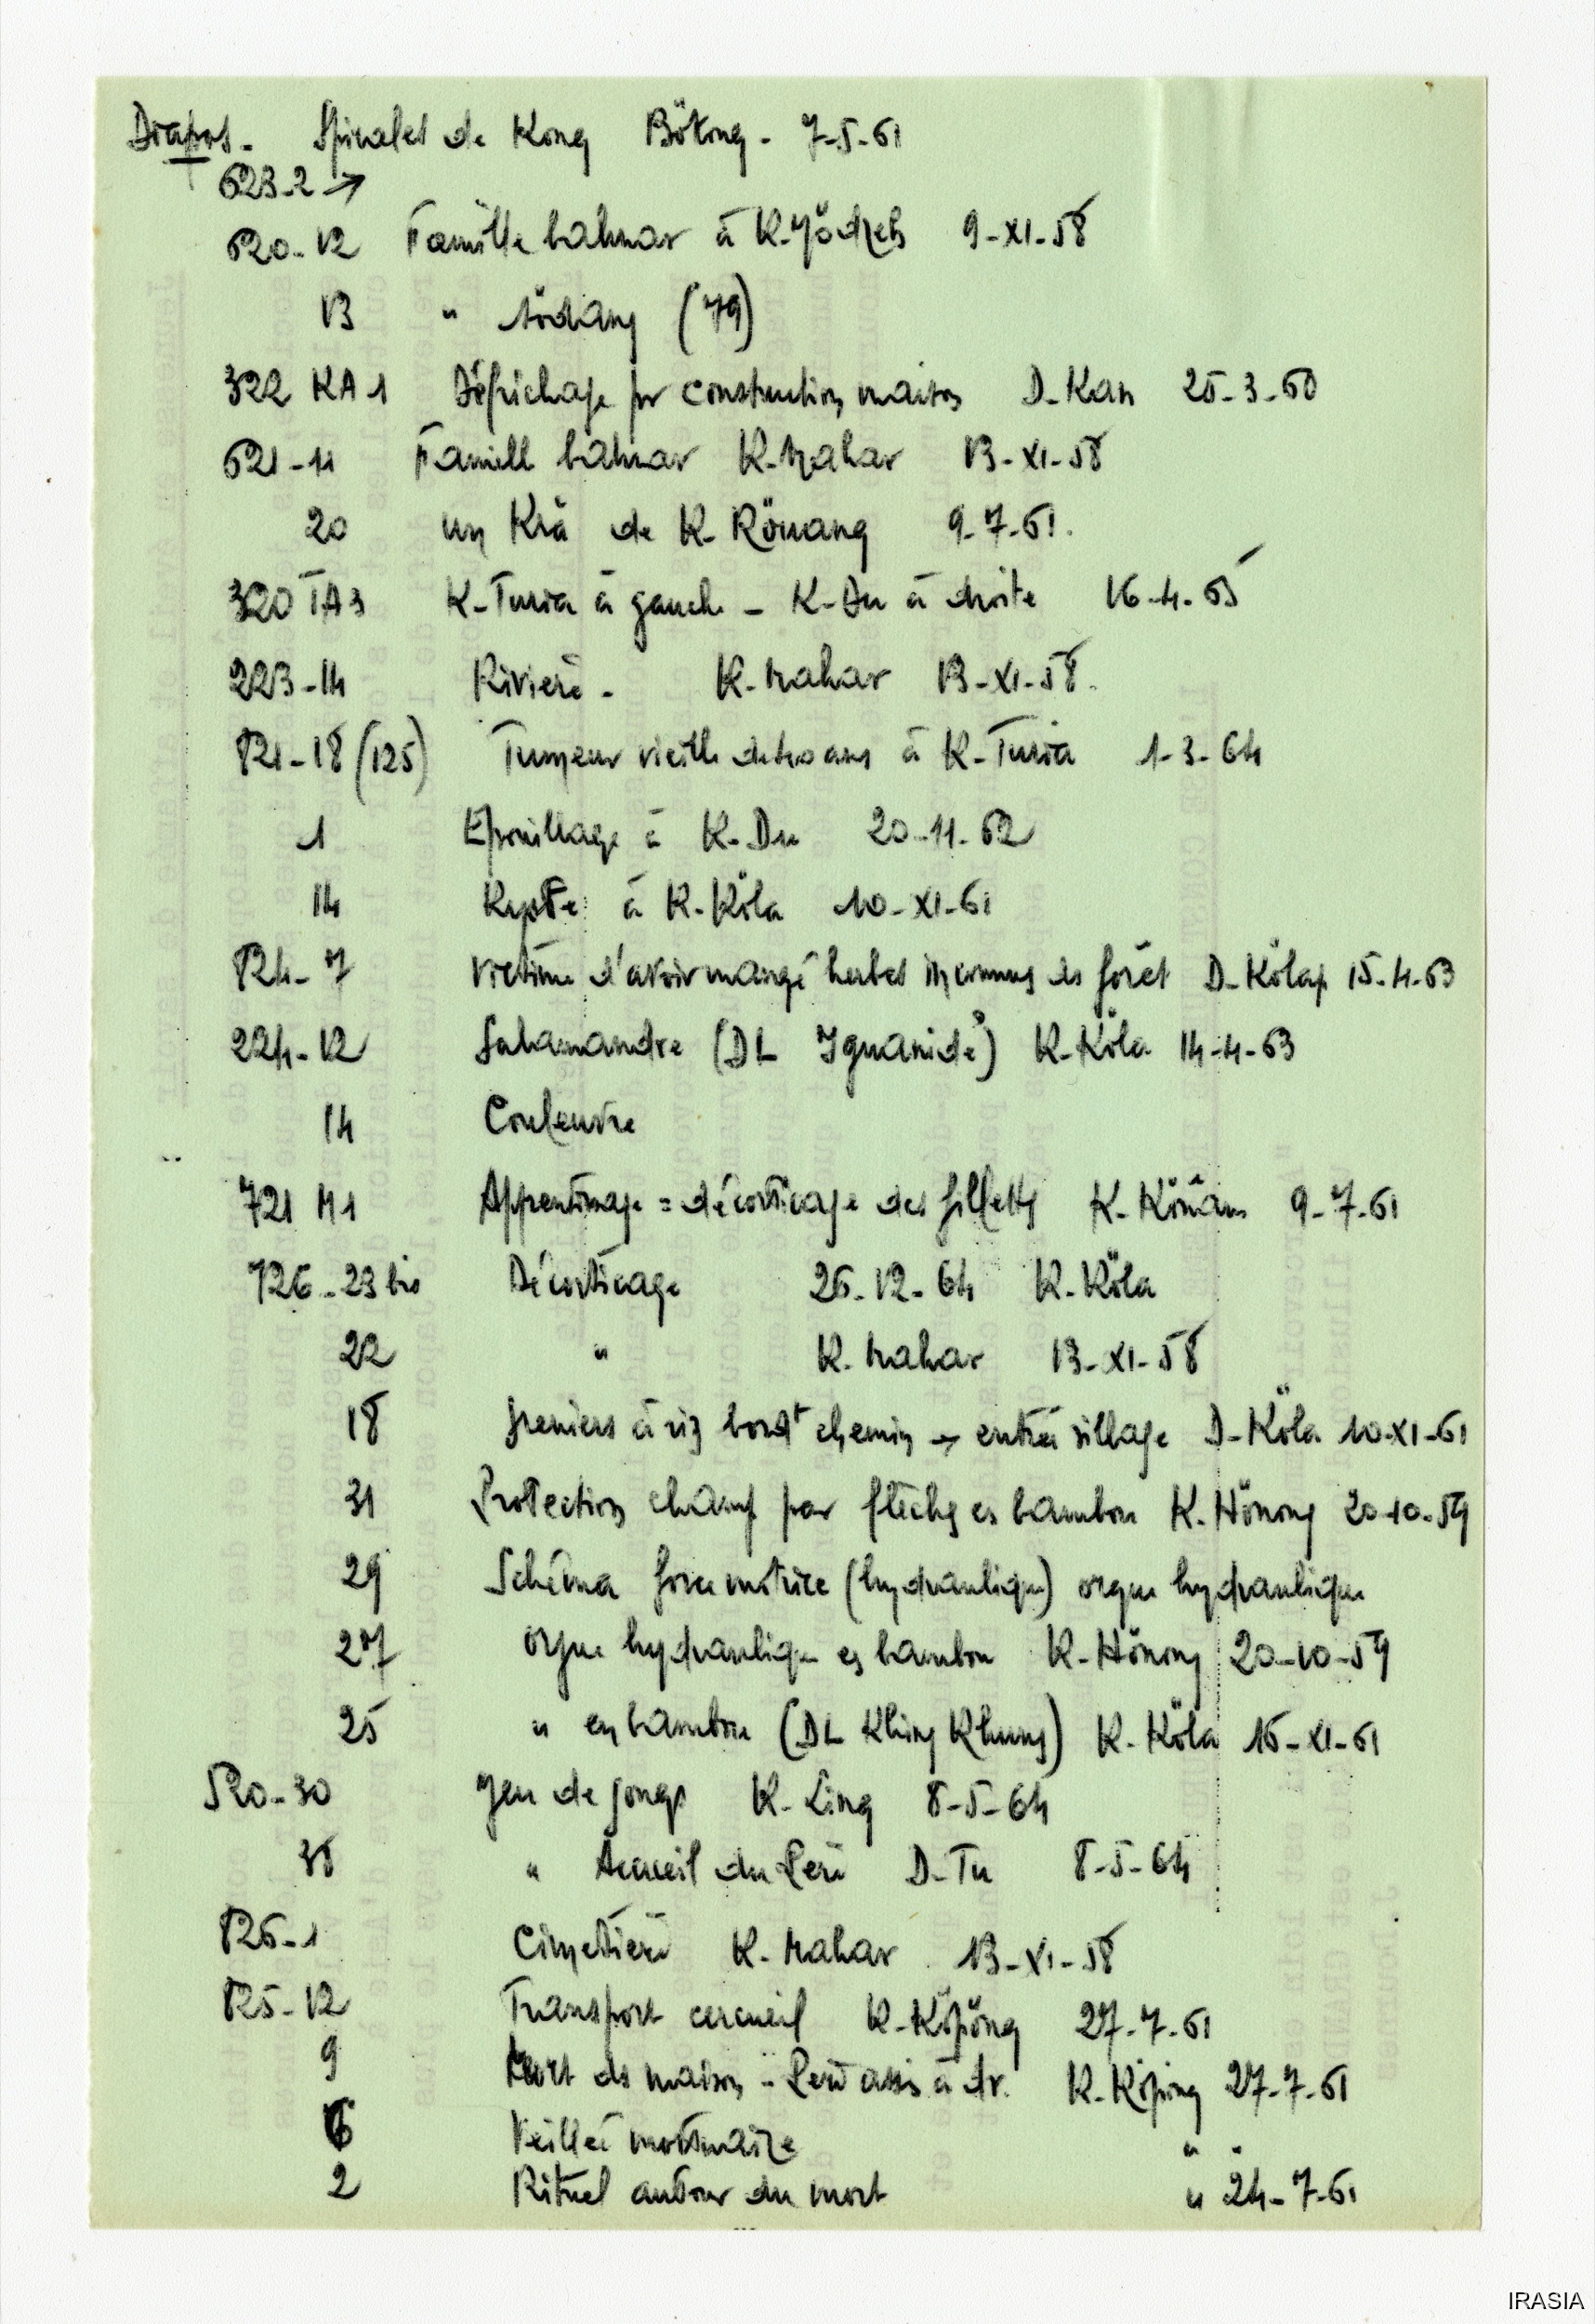 Diapos - Spirales de Kong Bötong - 7-5-61
623-2 →
620-12 Famille bahnar à K-Yödreh 9-XI-58
13 " södang (79)
322 KA 1 Défrichage pr construction maison D-Kan 25-3-60
621-11 Famill bahnar K-Mahar 13-XI-58
20 un Krâ de K-Römang 9-7-61.
320 TA3 K-Turia à gauche - K-Du à droite 16-4-65
223-14 Rivière - K-Mahar 13-XI-58.
121-18 (125) Tumeur vieille de ans à K-Turia 1-3-64
1 Epouillage à K-Du 20-11-62
14 à K-Köla 10-XI-61
124-7 Victime d'avoir mangé herbes inconnues ds forêt D-Kölap 15-4-63
224-12 Salamandre (DL Iguanidé?) K-Köla 14-4-63
14 Couleuvre
721 M1 Apprentissage = décorticage des fillettes K-Könâm 9-7-61
726-23 bis Décorticage 26-12-64 K-Köla
22 " K-Mahar 13-XI-58
18 Greniers à riz bordt chemin → entrée village D-Köla 10-XI-61
31 Protection champ par flèches en bambou K-Hönong 20-10-59
29 Schéma force motrice (hydraulique) orgue hydraulique
27 orgue hydraulique en bambou K-Hönong 20-10-59
25 " en bambou (DL Khing Khung) K-Köla 16-XI-61
520-30 Jeu de gongs K-Ling 8-5-64
38 " Accueil du Père D-Tu 8-5-64
126-1 Cimetière K-Mahar 13-XI-58
125-12 Transport cercueil K-Köpöng 27-7-61
9 Mort ds maison - Père assis à dr. K-Köpöng 27-7-61
6 Veillée mortuaire " "
2 Rituel autour du mort " 24-7-61
IRASIA